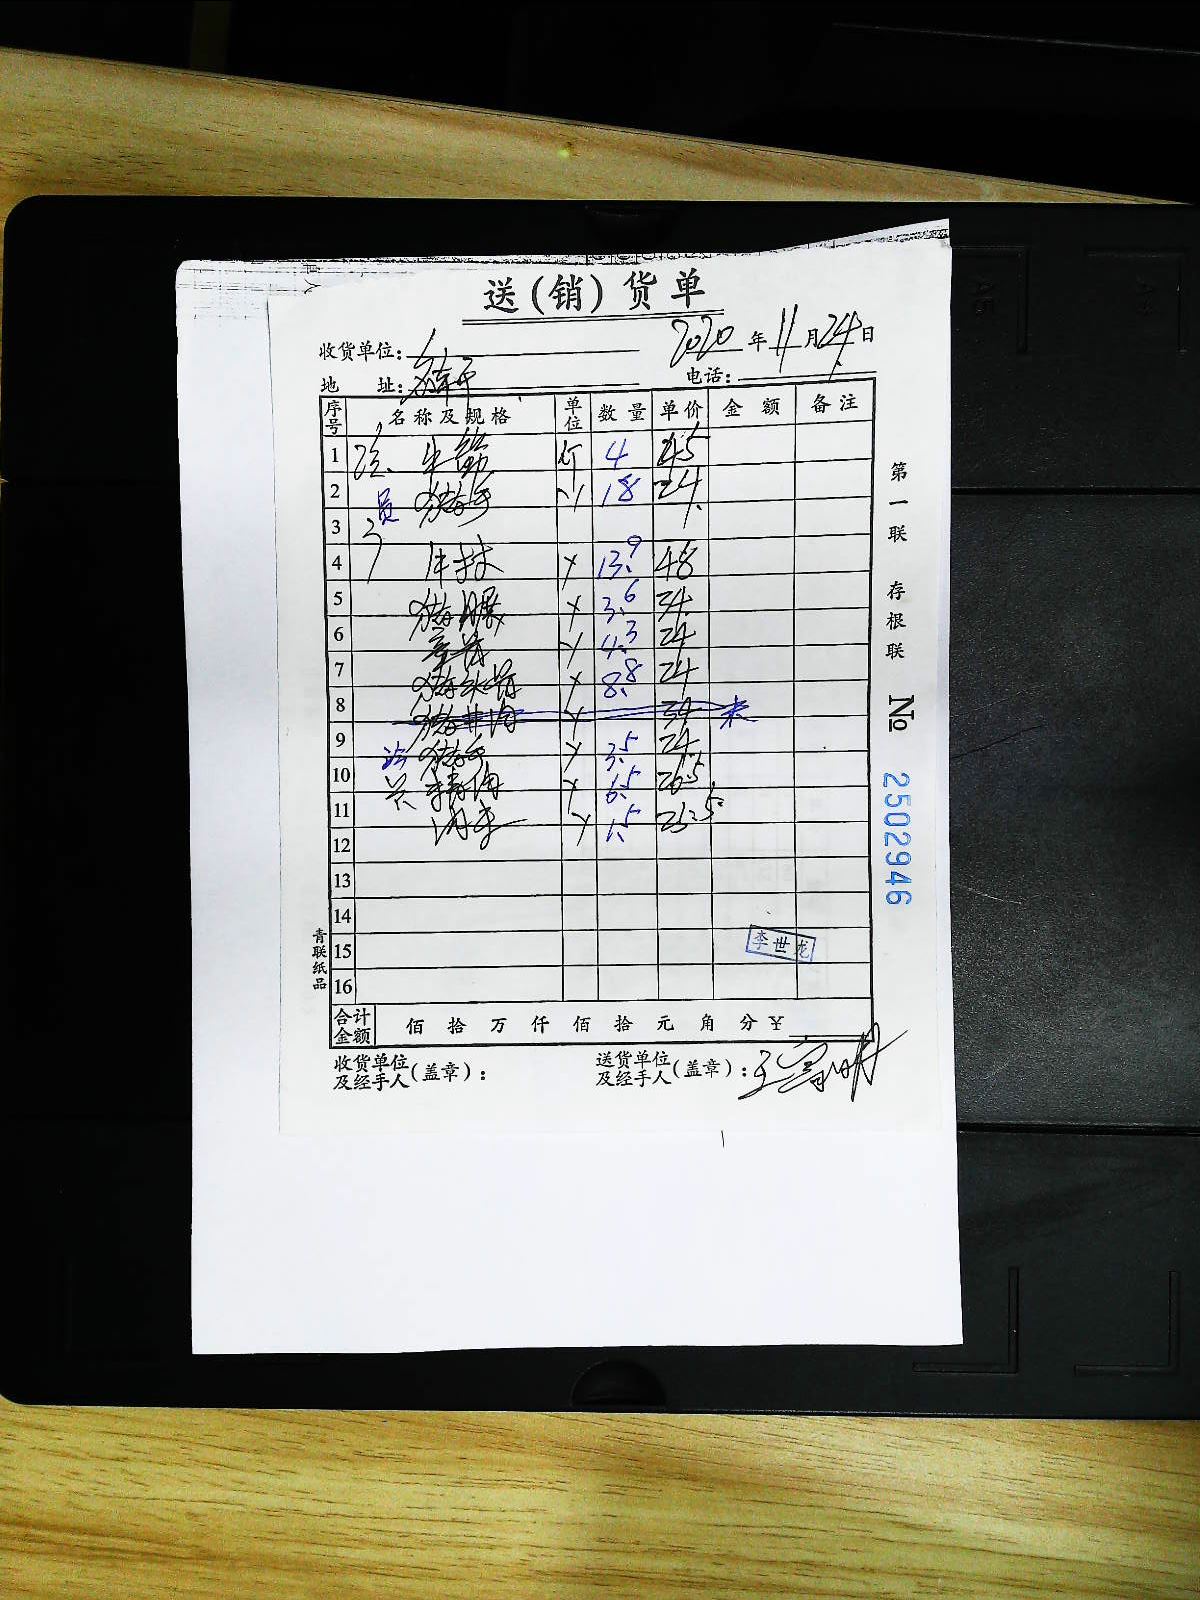 送(销)货单
收货单位:
2020年11月24日
地 址:
电话:
序号 名称及规格 单位 数量 单价 金额 备注
1 牛筋 斤 4 45
2 猪手 〃 18 24
3
4 牛林 〃 13.9 48
5 猪月展 〃 3.6 34
6 〃 4.3 24
7 猪 〃 8.8 24
8 猪 〃 34 未
9 猪手 〃 3.5 24
10 〃 6.5 26.5
11 〃 1.5 23.5
12
13
14
15
16
李世龙
合计金额 佰 拾 万 仟 佰 拾 元 角 分 ¥
收货单位及经手人(盖章):
送货单位及经手人(盖章):
第一联 存根联 No 2502946
青联纸品